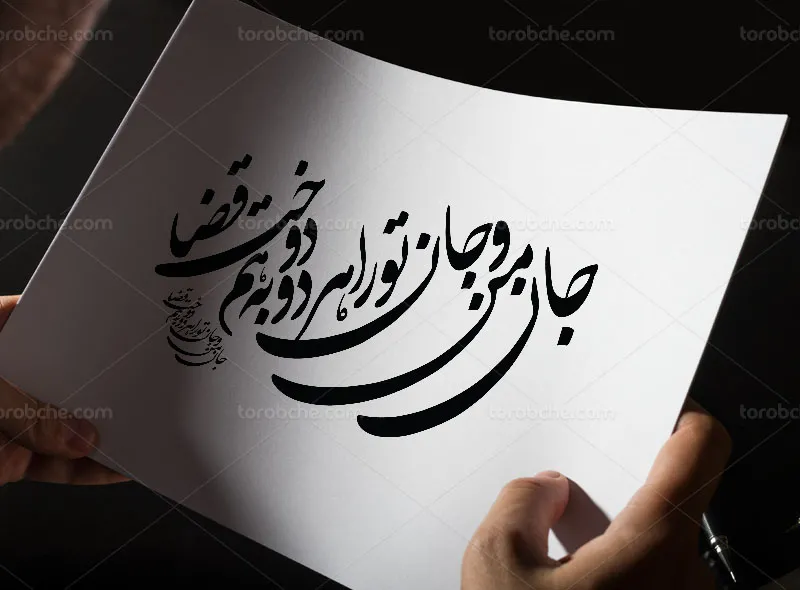 جان من و جان تو را هر دو به هم دوخت قضا
جان من و جان تو را هر دو به هم دوخت قضا
torobche.com torobche.com torobche.com torobche.com
torobche.com torobche.com torobche.com torobche.com
torobche.com torobche.com torobche.com torobche.com